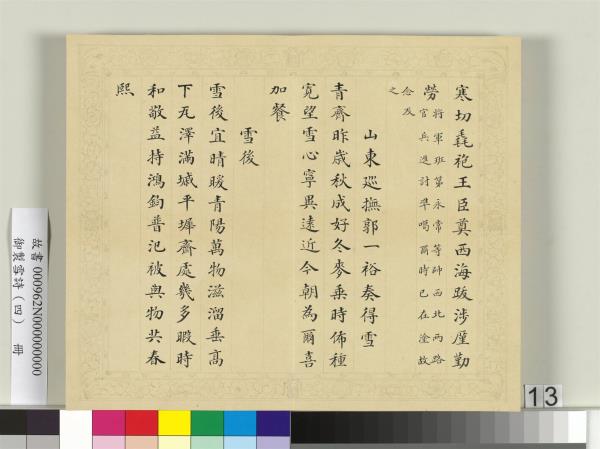 寒切毳袍王臣奠西海跋涉厪勤
勞
將軍班第永常等師西北兩路
官兵進討準噶爾時已在塗故
念及
之
山東巡撫郭一裕奏得雪
青齊昨歲秋成好冬麥乘時佈種
寬望雪心寧異遠近今朝為爾喜
加餐
雪後
雪後宜晴暖青陽萬物滋溜垂高
下瓦澤滿墄平墀齋處幾多暇時
和敬益持鴻鈞普氾被與物共春
熙
故書000962N000000000
御製雪詩(四) 冊
13